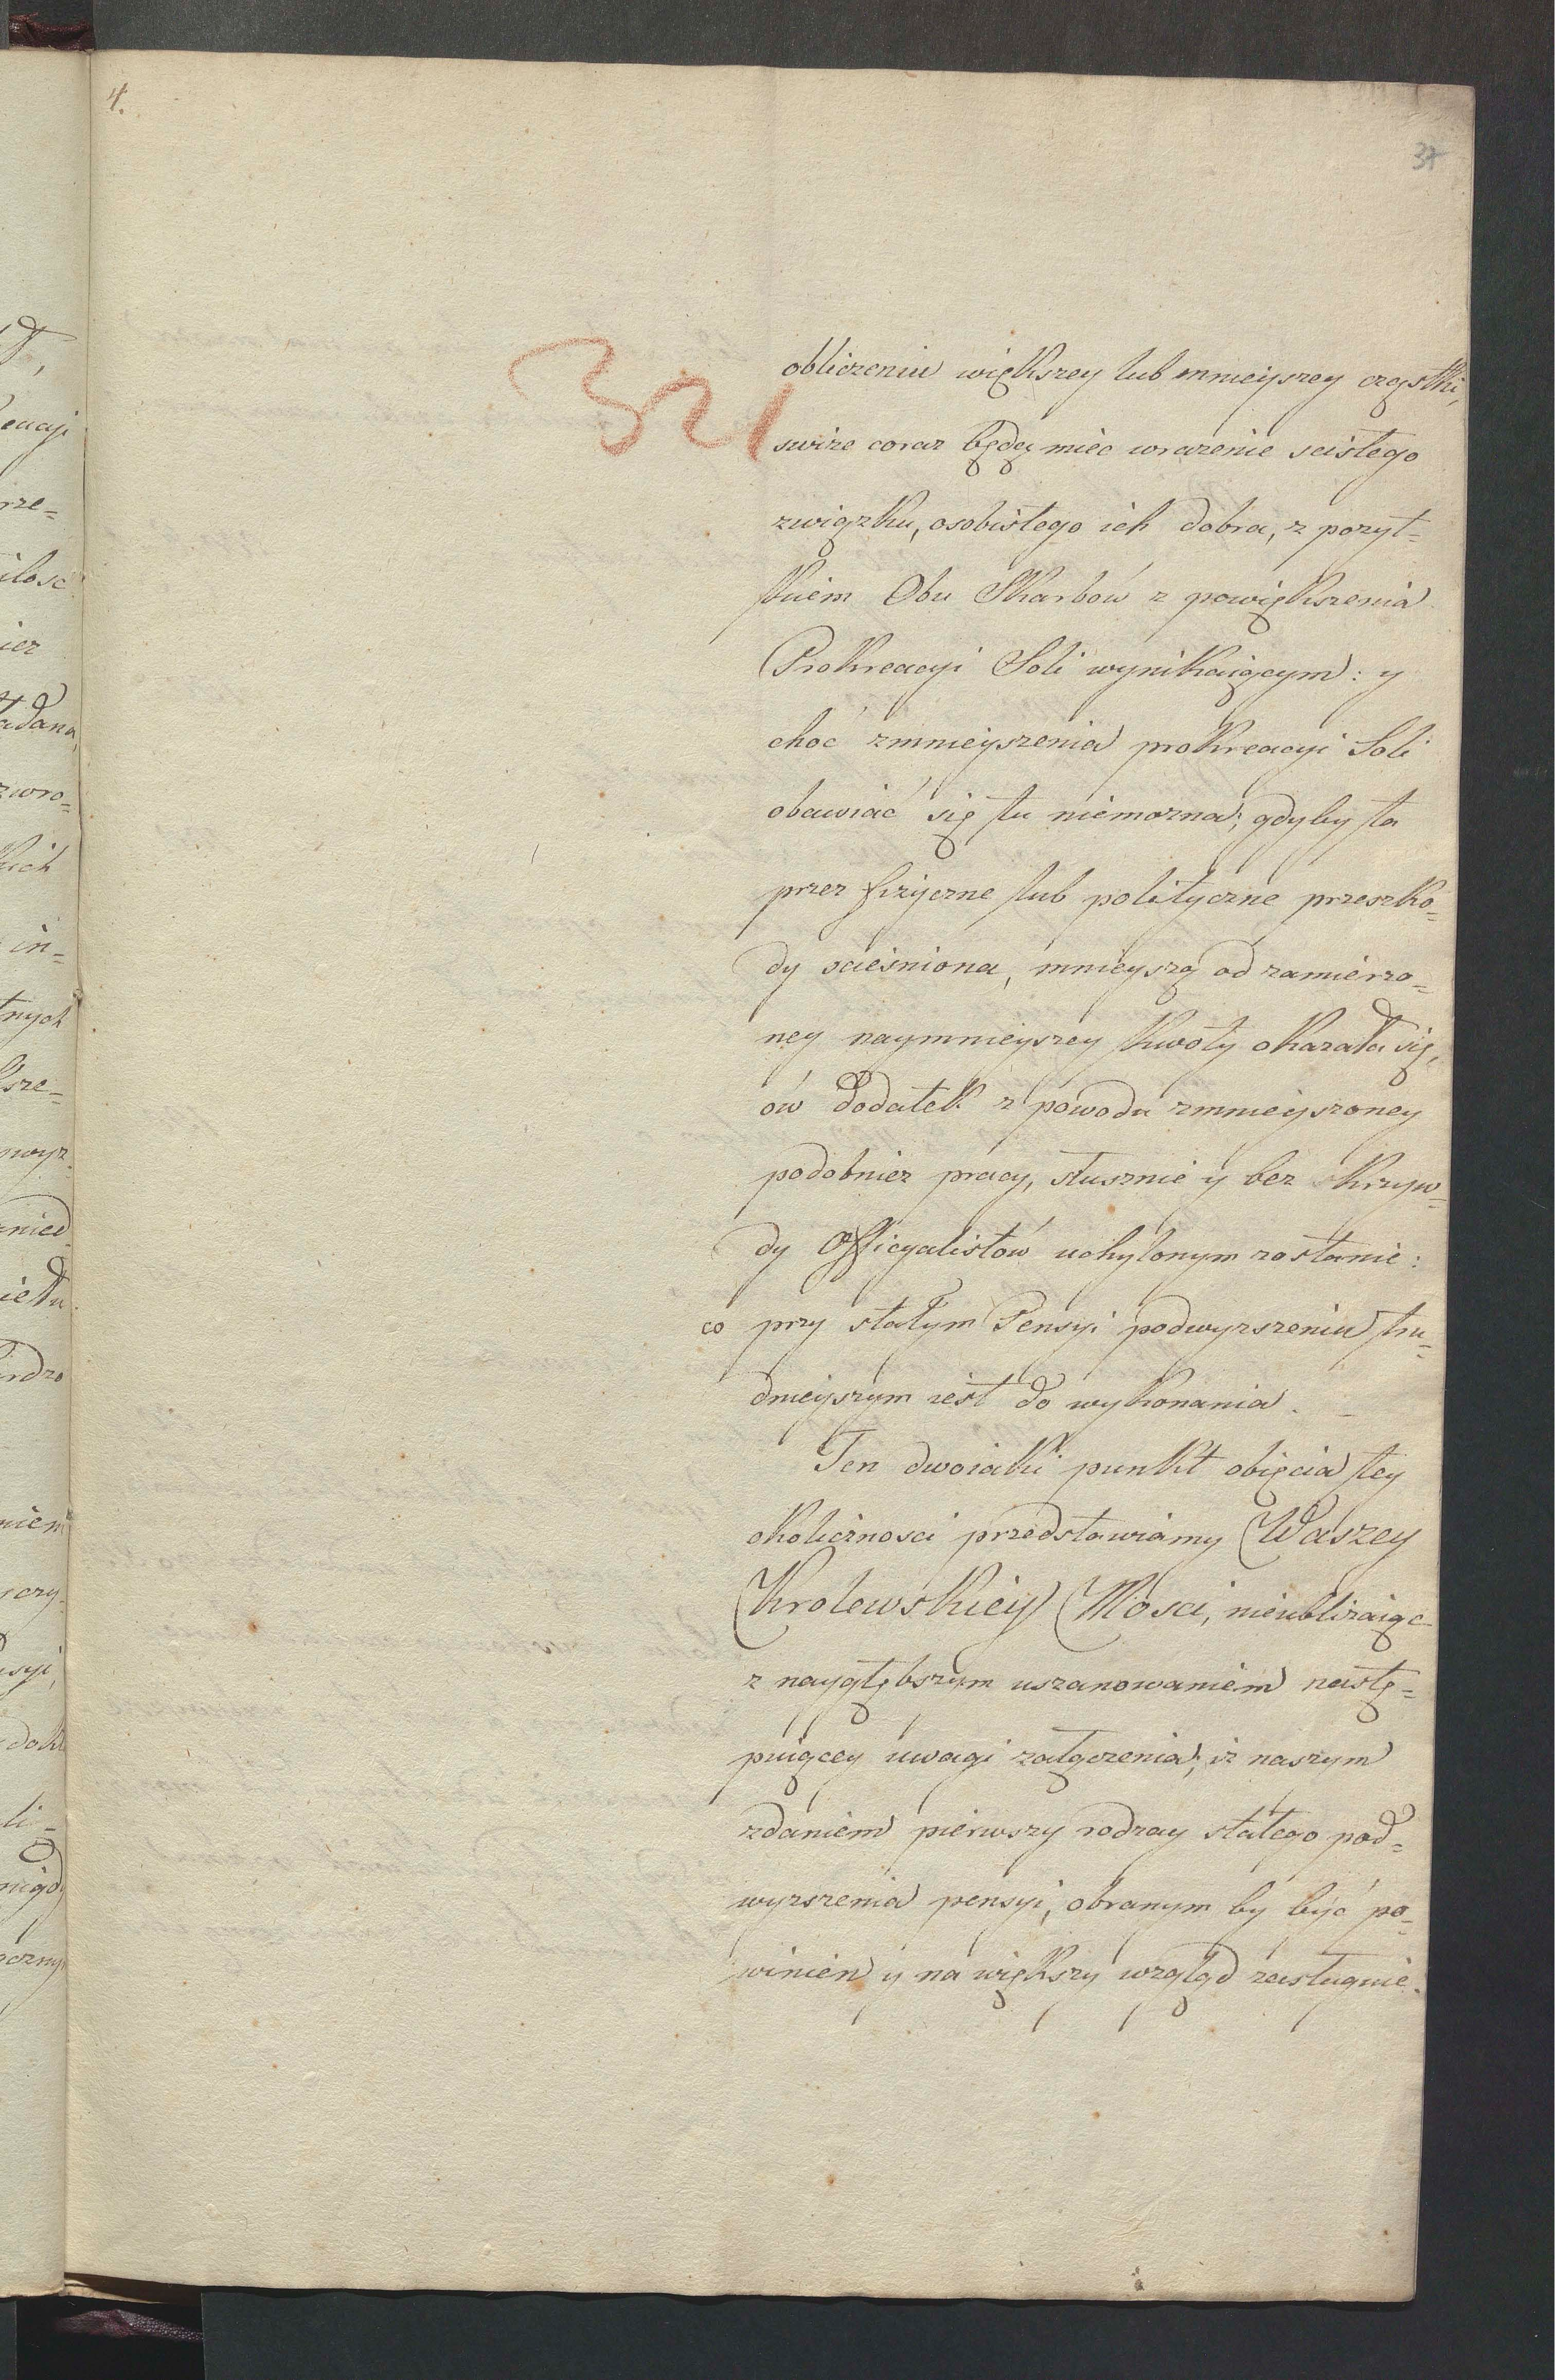 4.
37
321
obliczeniu większey lub mnieyszey cząstki,
swize coraz będą miec wrazenie scisłego
związku, osobistego ich dobra, z pozyt=
kiem Obu Skarbów z powiększenia
Prokreacyi Soli wynikaiącym: y
choć zmnieyszenia prokreacyi Soli
obawiać się tu niemozna; gdyby ta
przez fizyczne lub polityczne przeszko=
dy scieśniona, mnieyszą od zamierzo=
ney naymnieyszey kwoty okazała się,
ów dodatek z powodu zmnieyszoney
podobniez pracy, słusznie y bez krzyw=
dy Officyalistów uchylonym zostanie:
co przy stałym Pensyi podwyzszeniu tru=
dnieyszym iest do wykonania.
Ten dwoiaki punkt obięcia tey
okolicznosci przedstawiamy Waszey
Krolewskiey Mosci, nieubliżaiąc
z naygłębszym uszanowaniem nastę=
puiącey uwagi załączenia; iż naszym
zdaniem pierwszy rodzay stałego pod=
wyzszenia pensyi, obranym by być po=
winien y na większy wzgląd zasługuie.